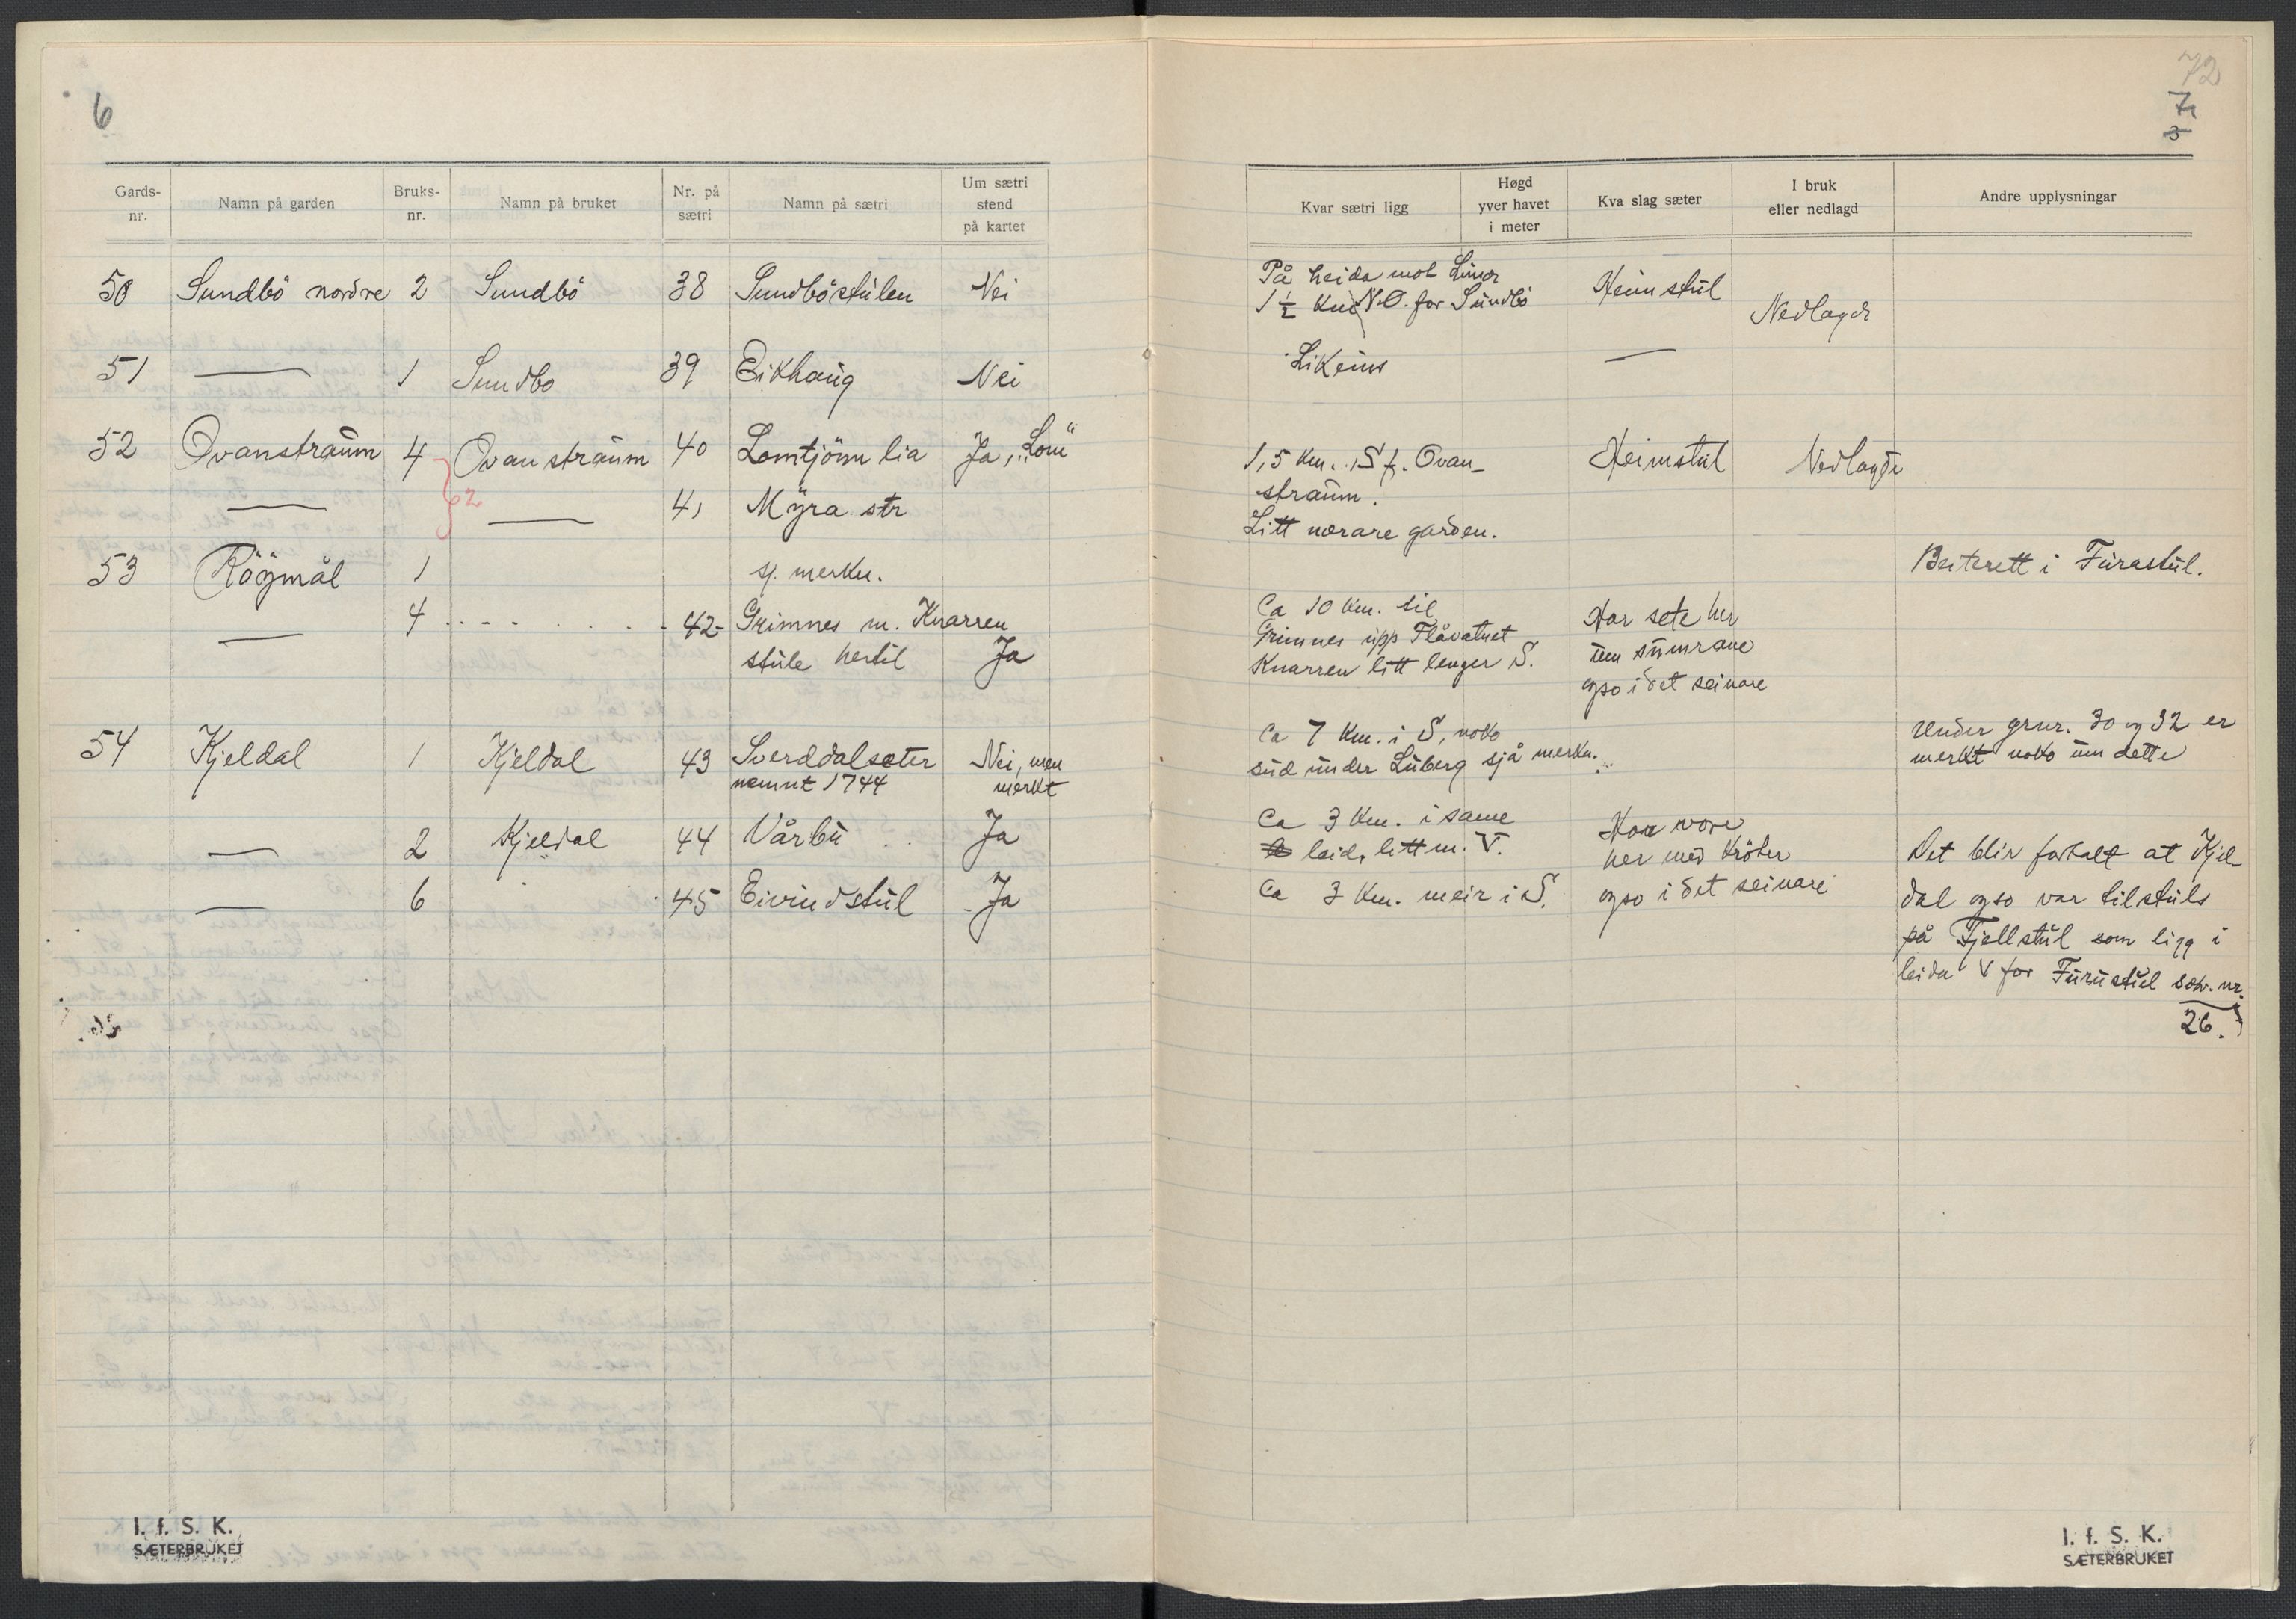 6
Gards-nr. Namn på garden Bruks-nr. Namn på bruket Nr. på sætri Namn på sætri Um sætri stend på kartet
50 Sundbö nordre 2 Sundbö 38 Sundböstulen Nei
51 — 1 Sundbo 39 Eikhaug Nei
52 Ovanstraum 4 Ovanstraum 40 Lomtjönn lia Ja, „Lom"
— 2 — 41 Myra str
53 Röymål 1 sj. merkn.
— 4 42 Grimnes m. Knarren
stule hertil Ja
54 Kjeldal 1 Kjeldal 43 Sverddalsæter Nei, men
nemnt 1744 merkt
— 2 Kjeldal 44 Vårbu Ja
— 6 " 45 Eivindstul Ja
I. f. S. K.
SÆTERBRUKET
72
7
3
Kvar sætri ligg Høgd yver havet i meter Kva slag sæter I bruk eller nedlagd Andre upplysningar
På heida mot
1 ½ km N.O. for Sundbö Heimstul Nedlagd
Likeins —
1,5 km. S f. Ovan- Heimstul Nedlagde
straum.
Litt nærare garden.
Beiterett i Furastul.
Ca 10 km. til Har sete her
Grimnes upp Flåvatnet um sumrane
Knarren litt lenger S. ogso i det seinare
Ca 7 km. i S, noko Under gnr. 30 og 32 er
sud under Luberg sjå merkn. merkt noko um dette
Ca 3 km. i same Har vore
leid, litt m. V. her med kröter Det blir fortalt at Kjel-
Ca 3 km. meir i S. ogso i det seinare dal ogso var tilstuls
på Fjellstul som ligg i
leida V for Furustul sæt. nr.
26.
I. f. S. K.
SÆTERBRUKET